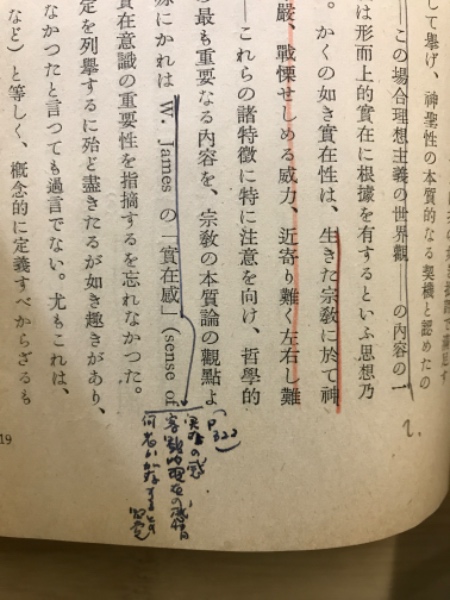 して擧げ、神聖性の本質的なる契機と認めたの
——この場合理想主義の世界觀——の内容の一
は形而上的實在に根據を有するといふ思想乃
。かくの如き實在性は、生きた宗敎に於て神
嚴、戰慄せしめる威力、近寄り難く左右し難
——これらの諸特徵に特に注意を向け、哲學的
の最も重要なる内容を、宗敎の本質論の觀點よ
にかれは W. James の「實在感」(sense of
實在意識の重要性を指摘するを忘れなかつた。
定を列擧するに殆ど盡きたるが如き趣きがあり、
なかつたと言つても過言でない。尤もこれは、
など）と等しく、概念的に定義すべからざるも
19
2.
(P322)
実在の感